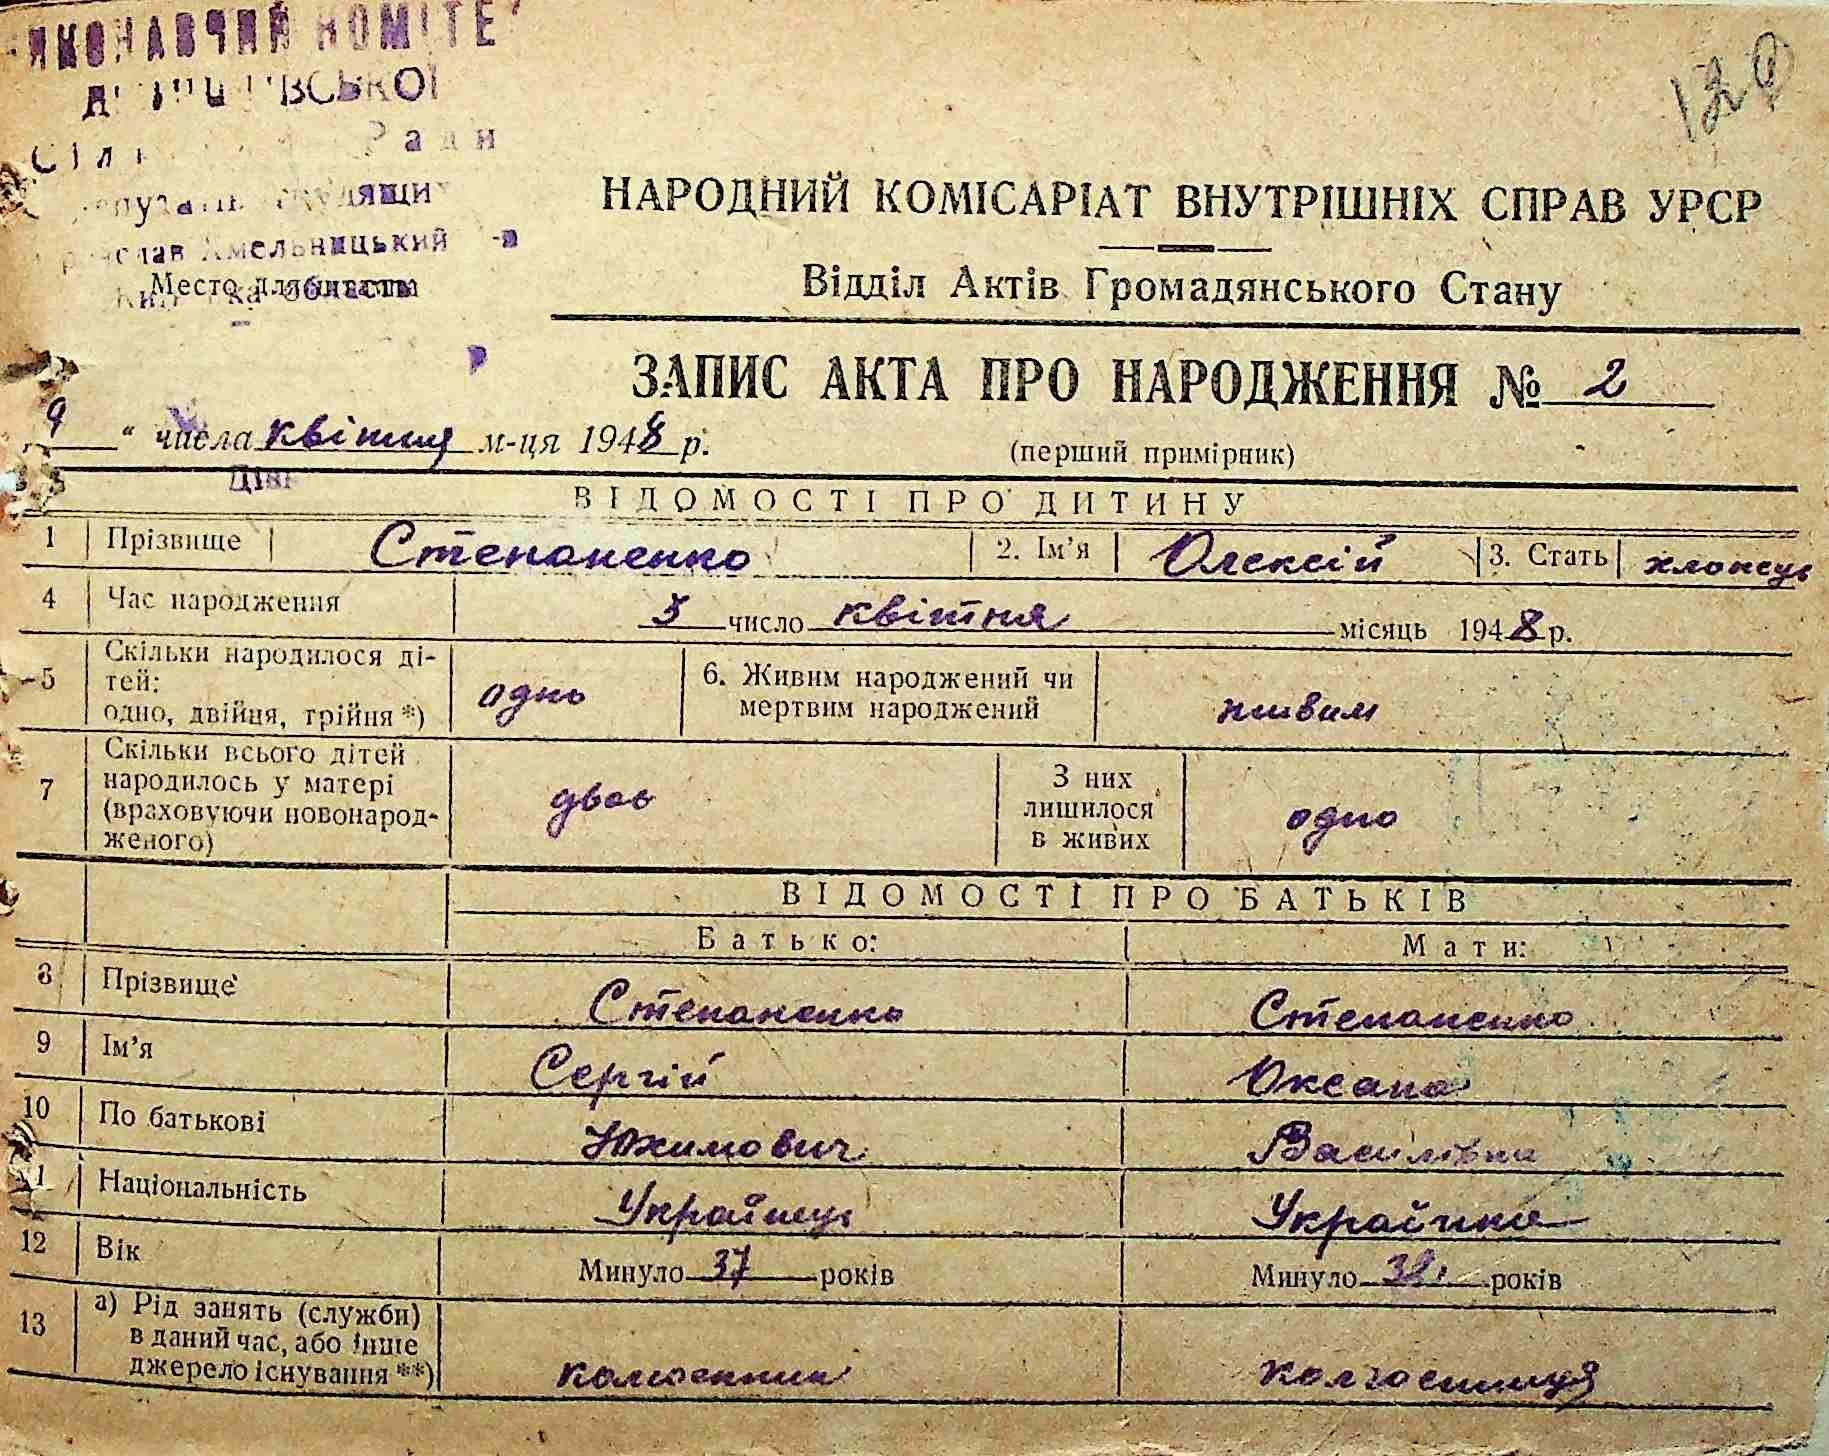 ВСЬКОЇ
Ради
Хмельницький
Место для штампа
129
НАРОДНИЙ КОМІСАРІАТ ВНУТРІШНІХ СПРАВ УРСР
Відділ Актів Громадянського Стану
ЗАПИС АКТА ПРО НАРОДЖЕННЯ № 2
9 " числа квітня м-ця 1948 р.
(перший примірник)
ВІДОМОСТІ ПРО ДИТИНУ
1 Прізвище Степаненко 2. Ім’я Олексій 3. Стать хлопець
4 Час народження 5 число квітня місяць 1948 р.
5 Скільки народилося ді-
тей:
одно, двійня, трійня *) одно
6. Живим народжений чи
мертвим народжений живим
7 Скільки всього дітей
народилось у матері
(враховуючи новонарод-
женого) двоє
З них
лишилося
в живих одно
ВІДОМОСТІ ПРО БАТЬКІВ
Батько: Мати:
8 Прізвище Степаненко Степаненко
9 Ім’я Сергій Оксана
10 По батькові Юхимович Василівна
11 Національність Українець Українка
12 Вік Минуло 37 років Минуло років
13 а) Рід занять (служби)
в даний час, або інше
джерело існування **) колгоспник колгоспниця